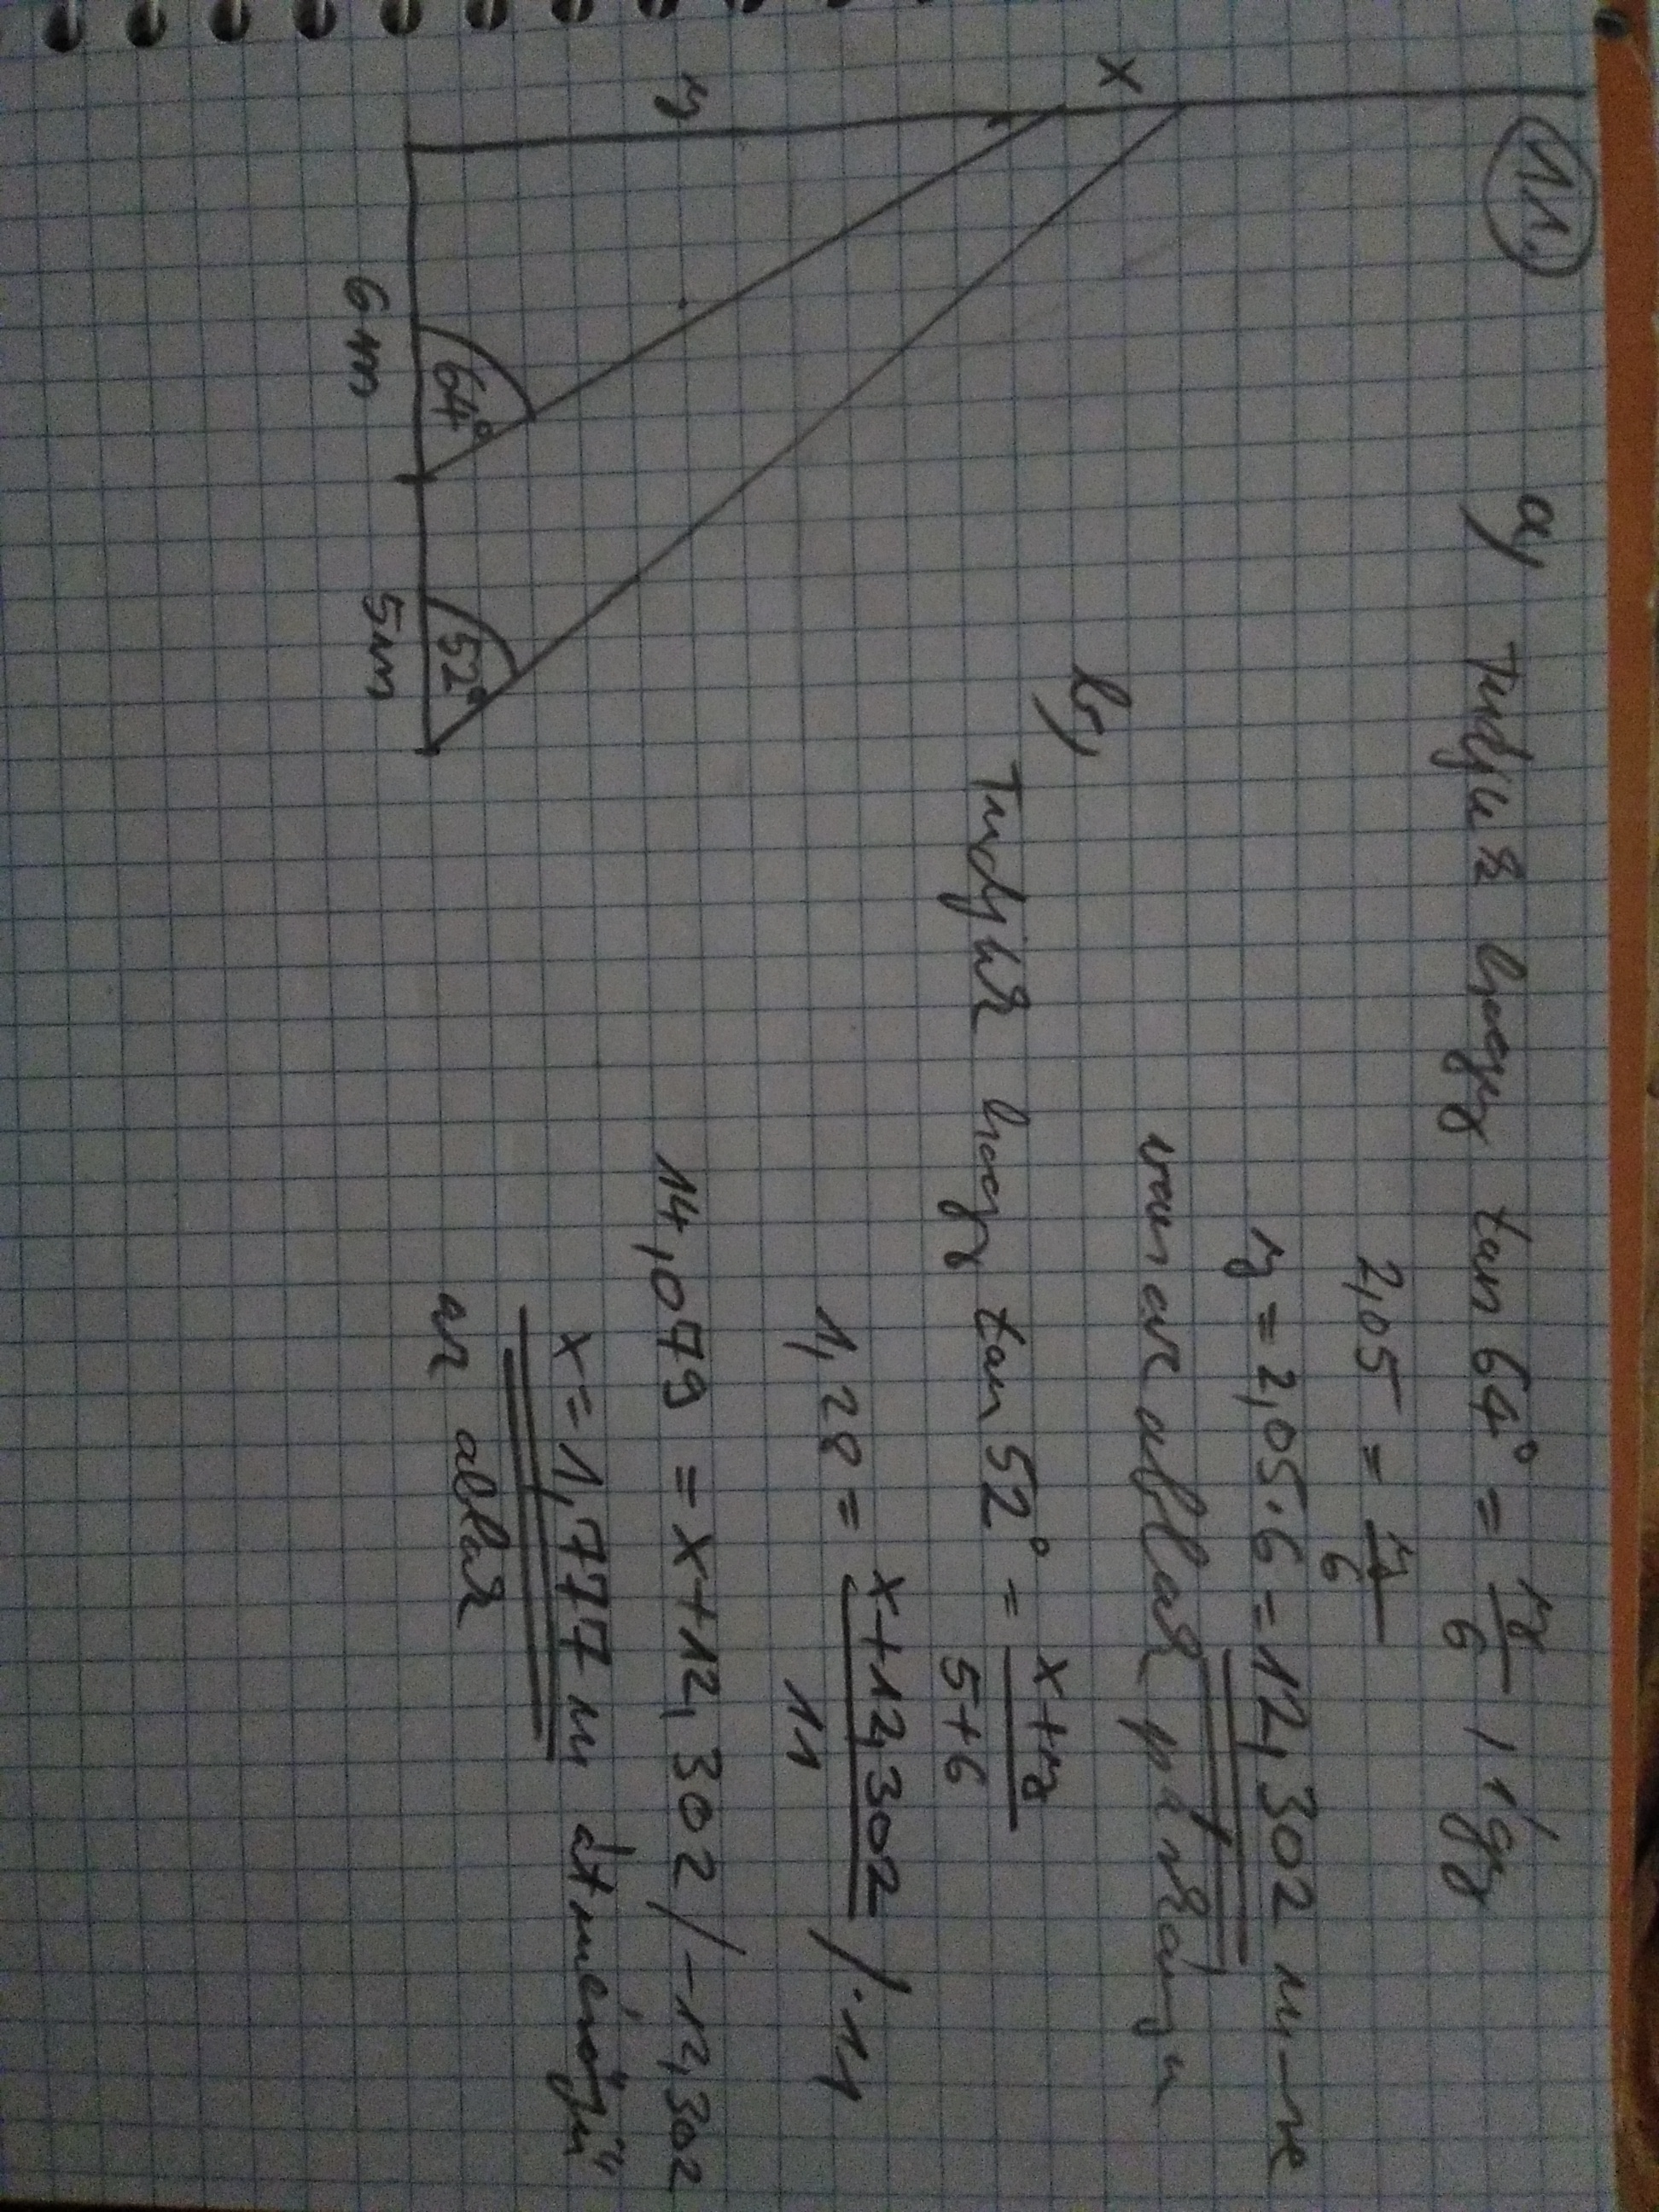 11,
a, Tudjuk hogy tan 64° = y/6, így
2,05 = y/6
y = 2,05 · 6 = 12,302 m-re
van az ablak párkánya
b,
Tudjuk hogy tan 52° = x+y/5+6
1,28 = x+12,302/11 /·11
14,079 = x+12,302 /-12,302
x = 1,777 m átmérőjű
az ablak
x
y
64°
52°
6m
5m